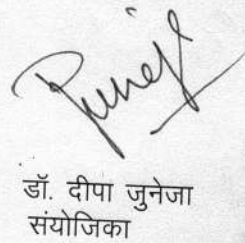 डॉ. दीपा जुनेजा
संयोजिका